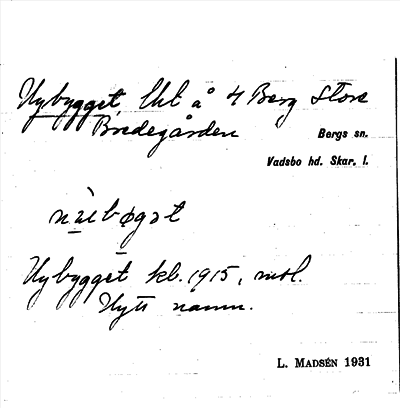 Nybygget, lht å 4 Berg Store
Bredegården
Bergs sn.
Vadsbo hd. Skar. l.
nỳebøgət
Nybygget kb. 1915, mtl.
Nytt namn.
L. MADSÉN 1931